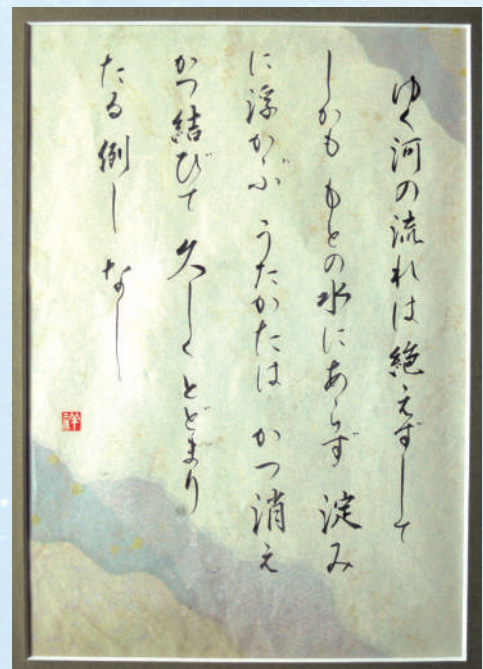 ゆく河の流れは絶えずして
しかも もとの水にあらず 淀み
に浮かぶ うたかたは かつ消え
かつ結びて 久しく とどまり
たる 例し なし
祥